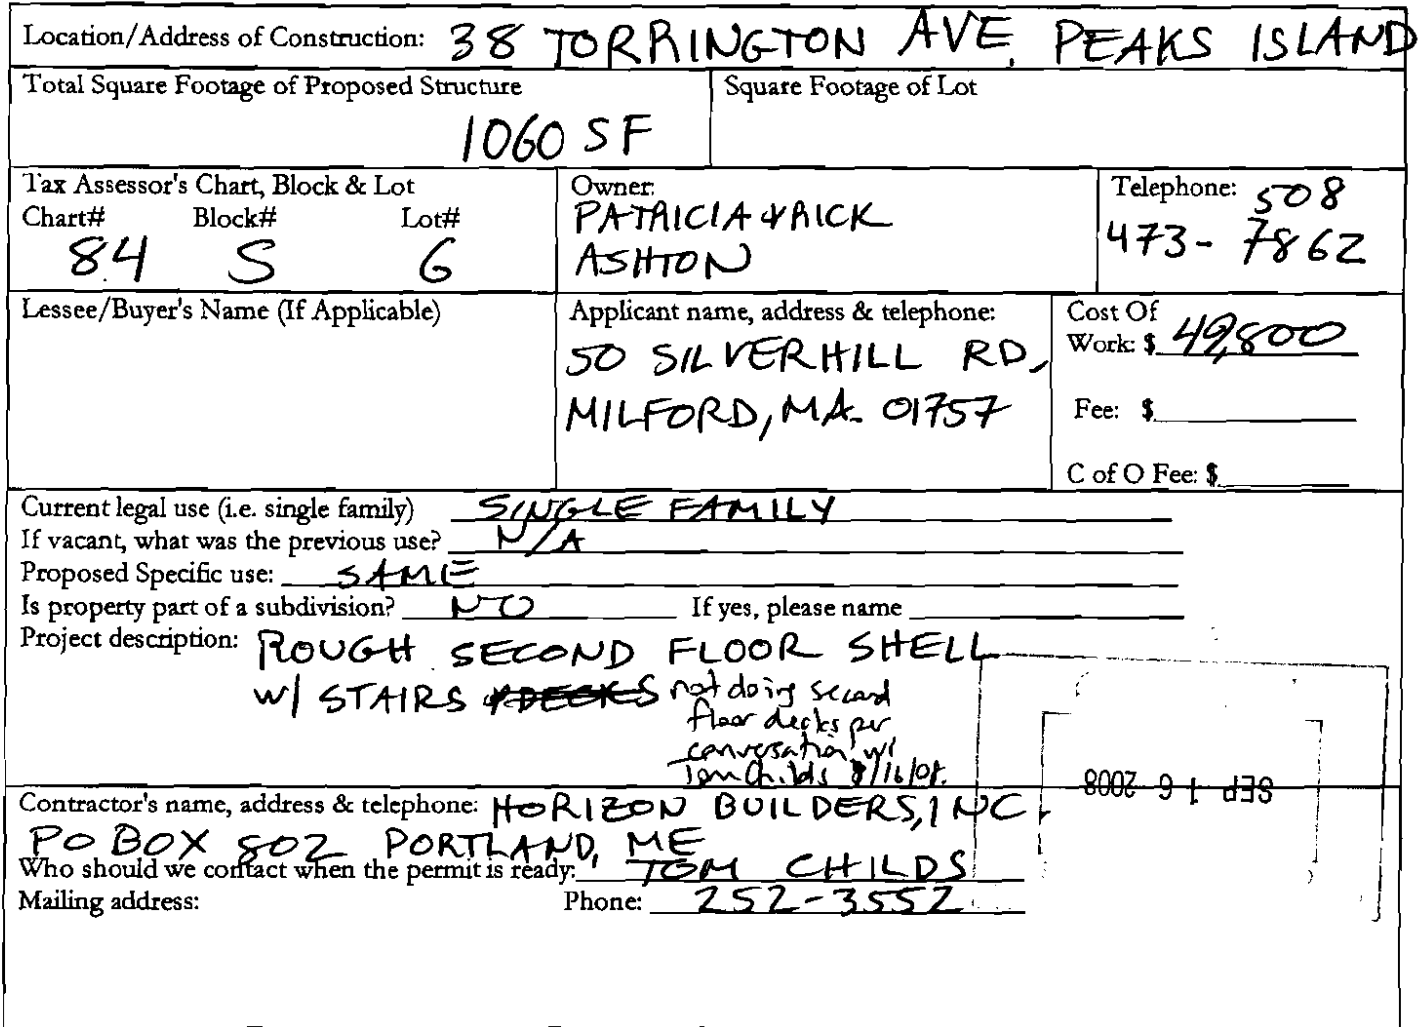 Location/Address of Construction: 38 TORRINGTON AVE, PEAKS ISLAND
Total Square Footage of Proposed Structure
1060 SF
Square Footage of Lot
Tax Assessor's Chart, Block & Lot
Chart# Block# Lot#
84 S 6
Owner:
PATRICIA & RICK
ASHTON
Telephone: 508
473-7862
Lessee/Buyer's Name (If Applicable)
Applicant name, address & telephone:
50 SILVERHILL RD,
MILFORD, MA. 01757
Cost Of
Work: $ 49,800
Fee: $
C of O Fee: $
Current legal use (i.e. single family) SINGLE FAMILY
If vacant, what was the previous use? N/A
Proposed Specific use: SAME
Is property part of a subdivision? NO If yes, please name
Project description: ROUGH SECOND FLOOR SHELL
W/ STAIRS & DECKS not doing second
floor decks per
conversation w/
Tom Childs 9/16/08.
SEP 16 2008
Contractor's name, address & telephone: HORIZON BUILDERS, INC.
PO BOX 802 PORTLAND, ME
Who should we contact when the permit is ready: TOM CHILDS
Mailing address: Phone: 252-3552